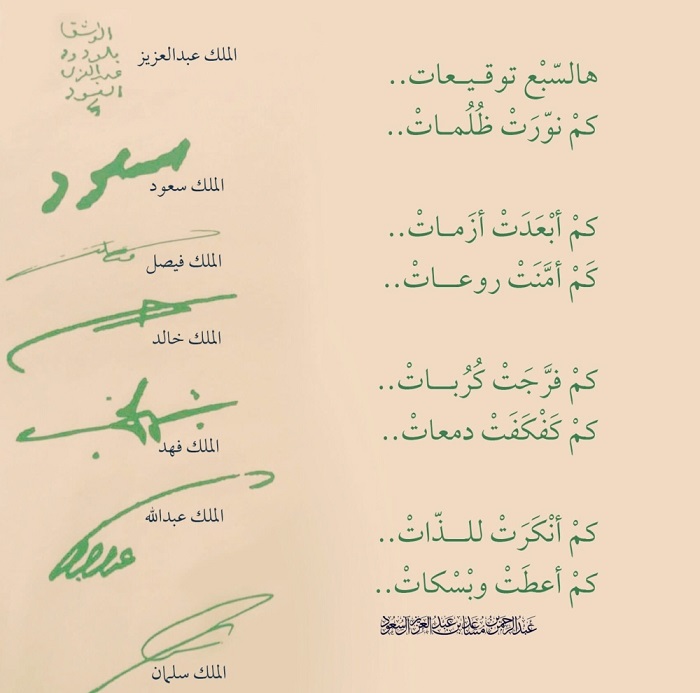 هالسّبْع توقـيـعات..
كمْ نوّرَتْ ظُلُمـاتْ..
كمْ أبْعَدَتْ أزَمـاتْ..
كَمْ أمَّنَتْ روعـــاتْ..
كمْ فرَّجَتْ كُرُبـــاتْ..
كمْ كَفْكَفَتْ دمعاتْ..
كمْ أنْكَرَتْ للـــذّاتْ..
كمْ أعطَتْ وبْسْكاتْ..
عبدالرحمن بن مساعد بن عبدالعزيز آل سعود
الملك عبدالعزيز
سعود
الملك سعود
الملك فيصل
الملك خالد
الملك فهد
الملك عبدالله
عبدالله
الملك سلمان